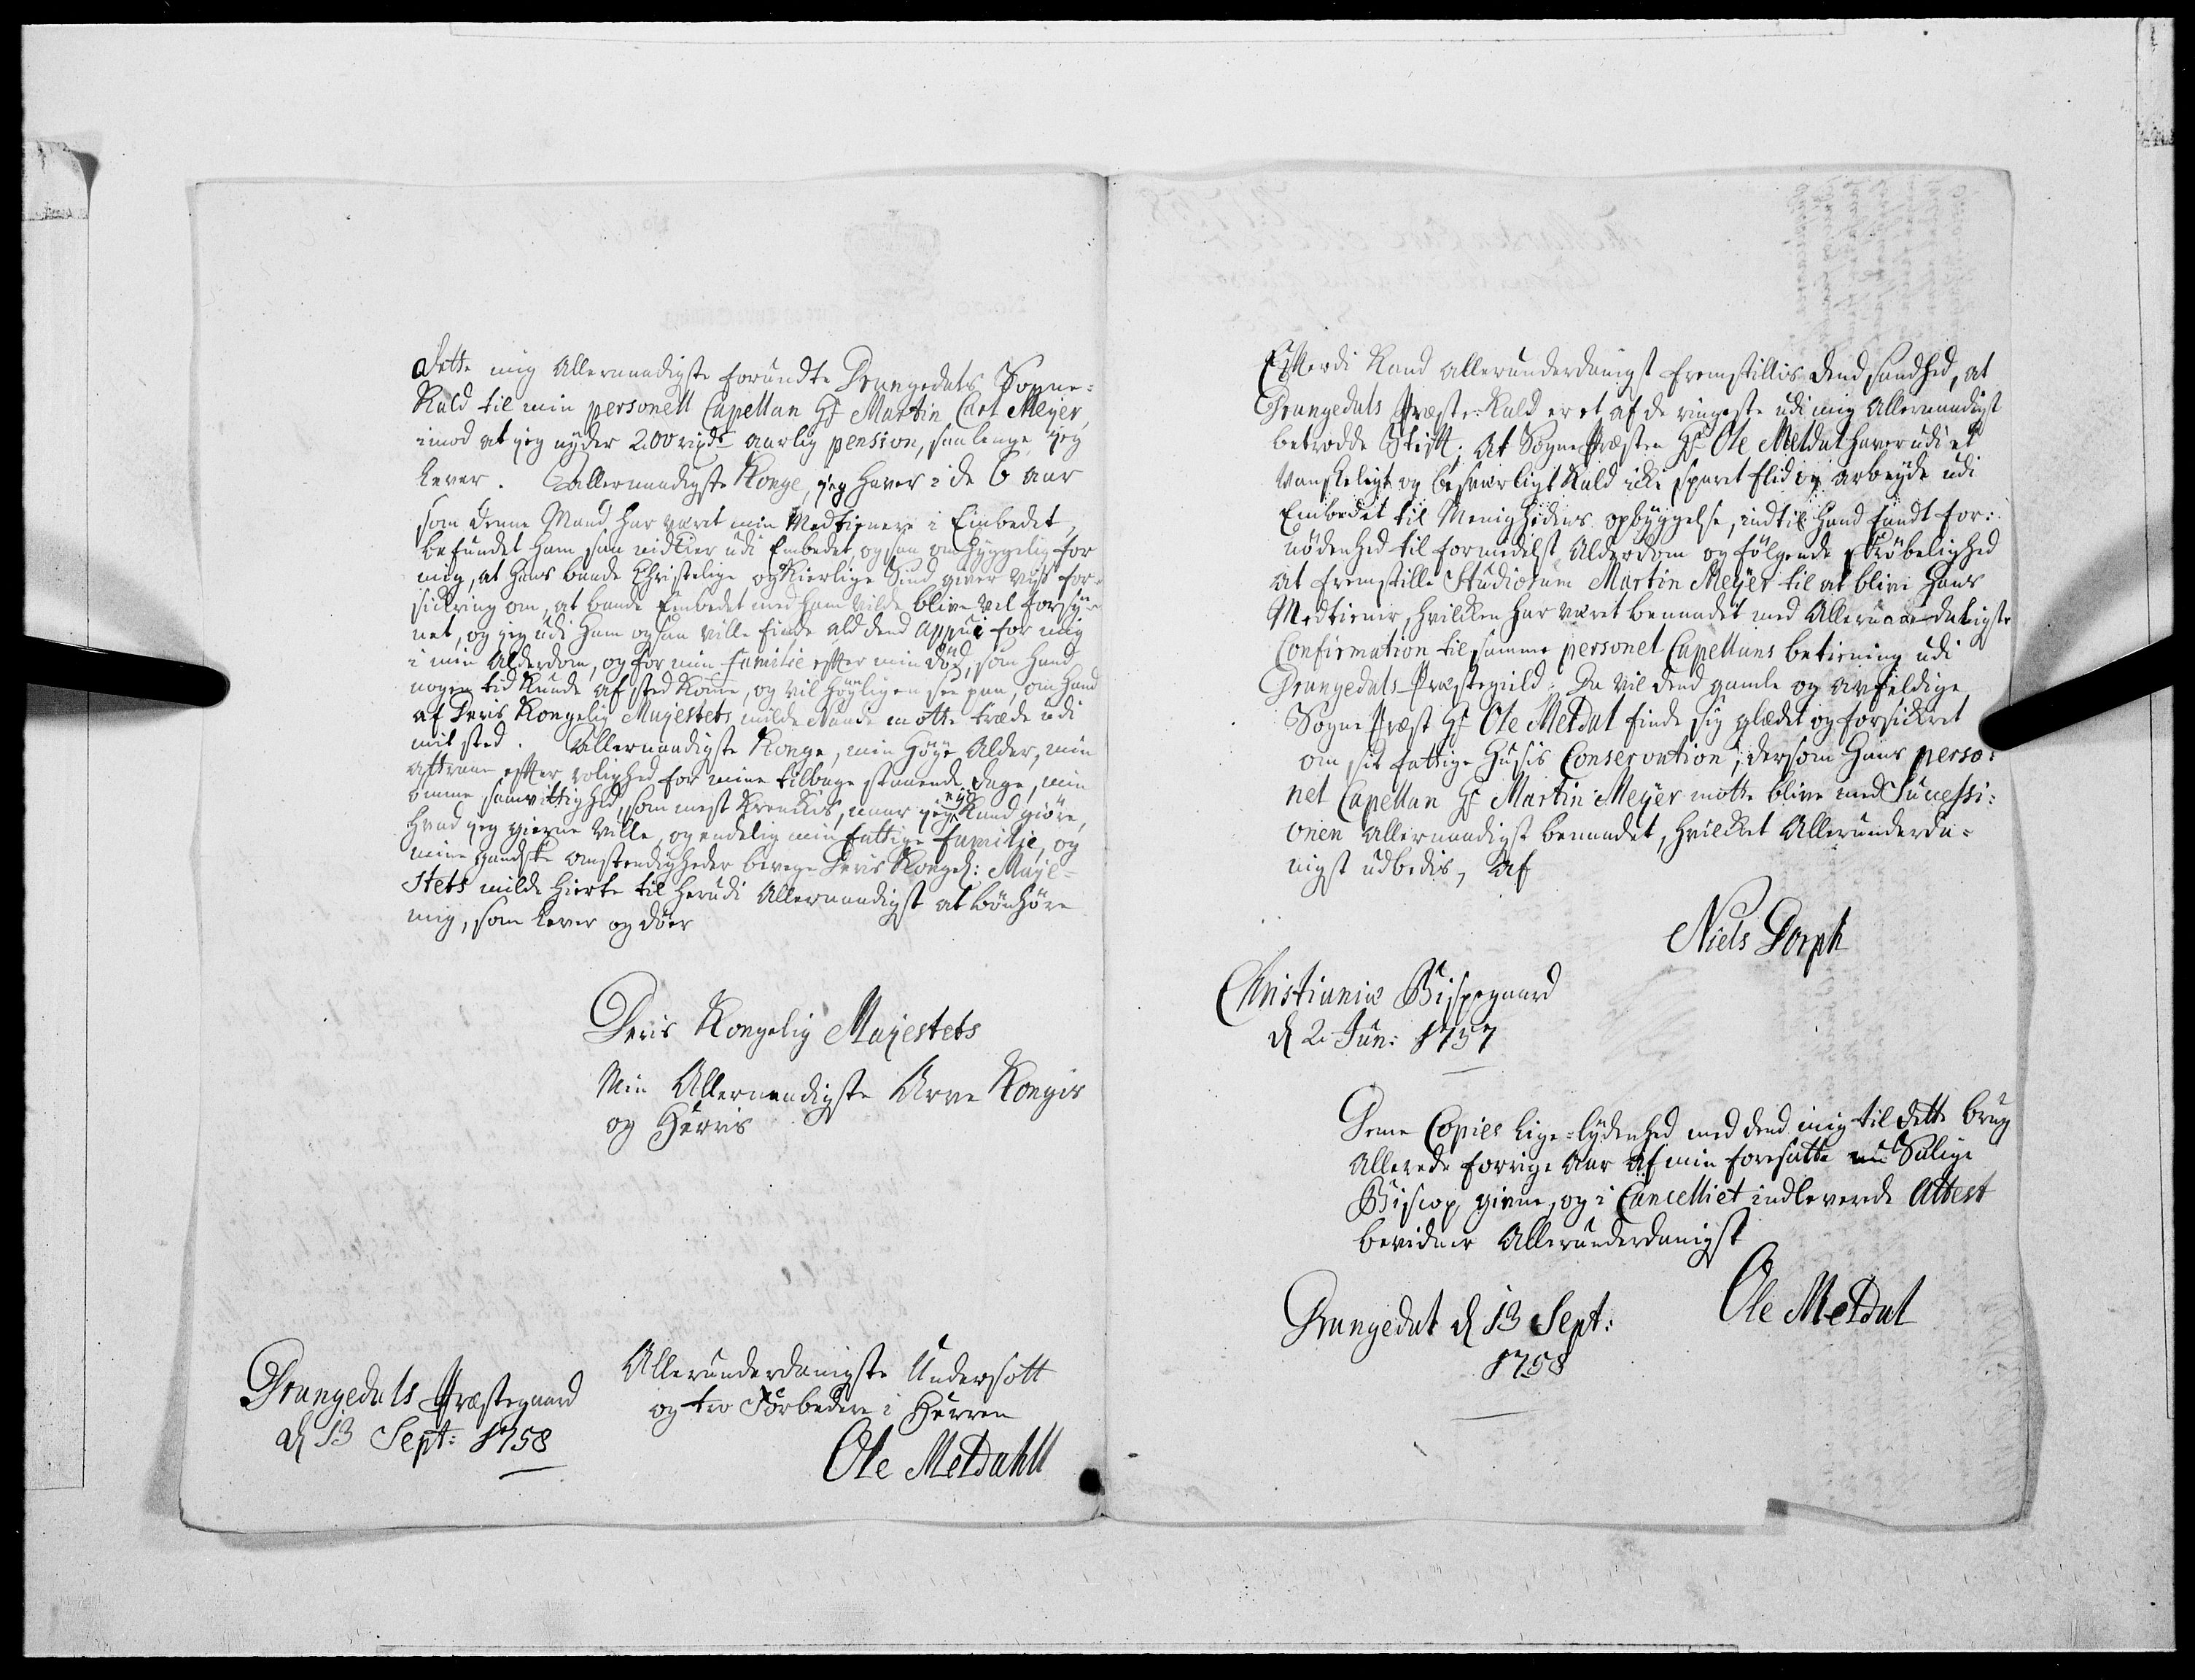 dette mig Allernaadigste forundte Drangedals Sogne-
Kald til min personell Capellan Hr Martin Carl Meyer,
imod at jeg nyder 200 rixdr aarlig pension, saalenge jeg
lever. Allernaadigste Konge, jeg haver i de 6 aar
som denne Mand har været min Medtienere i Embedet,
befundet ham saa nidkier udi Embedet, og saa omhyggelig for
mig, at hans baade Christelige og Kierlige Sind giver viss for-
sickring om, at baade Embedet med ham vilde blive vel forsy-
net, og jeg udi ham ogsaa ville finde ald dend appui for mig
i min Alderdom, og for min familie efter min død, som hand
nogen tid kunde afsted komme, og vil høyligen see paa, om hand
af Deris Kongelig Majestets milde Naade motte træde udi
mit sted. Allernaadigste Konge, min høye Alder, min
attraae efter rolighed for mine tilbage staaende dage, min
ømme samvittighed, som mest krenkis, naar jeg ej kand giøre,
hvad jeg gierne ville, og endelig min fattige familie, og
mine gandske omstendigheder bevege Deris Kongel: Maje-
stets milde hierte til herudi Allernaadigst at bønhøre
mig, som lever og døer
Deris Kongelig Majestets
Min Allernaadigste Arve Konges
og Herris
Drangedals Præstegaard
d 13 Sept: 1758
Allerunderdanigste Undersott
og tro Forbedere i Herren
Ole Meldahll
Efterdi Kand allerunderdanigst fremstillis dend sandhed, at
Drangedals Præste-Kald er et af de ringeste udi mig Allernaadigst
betrodde Stift; At SognePræsten Hr Ole Meldal haver udi et
vanskeligt og besværligt Kald icke sparet flid og arbeyde udi
Embedet til Menighedens opbyggelse, indtil hand fandt for:
nødenhed til formedelst Alderdom og følgende skrøbelighed
at fremstille Studiosum Martin Meyer til at blive hans
Medtiener, hvilcken har været benaadet med Allernaadigste
Confirmation til samme personel Capellans betiening udi
Drangedals Præstegield. Da vil dend gamle og avfeldige
Sogne Præst Hr Ole Meldal finde sig glædet og forsickret
om sit fattige Husis Conservation, dersom hans perso:
nel Capellan Hr Martin Meyer motte blive med Successi:
onen allernaadigst benaadet, hvilcket Allerunderda-
nigst udbedis, Af
Niels Dorph
Christianiæ Bispegaard
d 2 Jun: 1757
Denne Copies lige-lydenhed med dend mig til dette brug
Allerede forrige Aar af min foresatte nu Salige
Biscop givne, og i Cancelliet indleverede Attest
bevidner Allerunderdanigst
Drangedal d 13 Sept:
1758
Ole Meldal